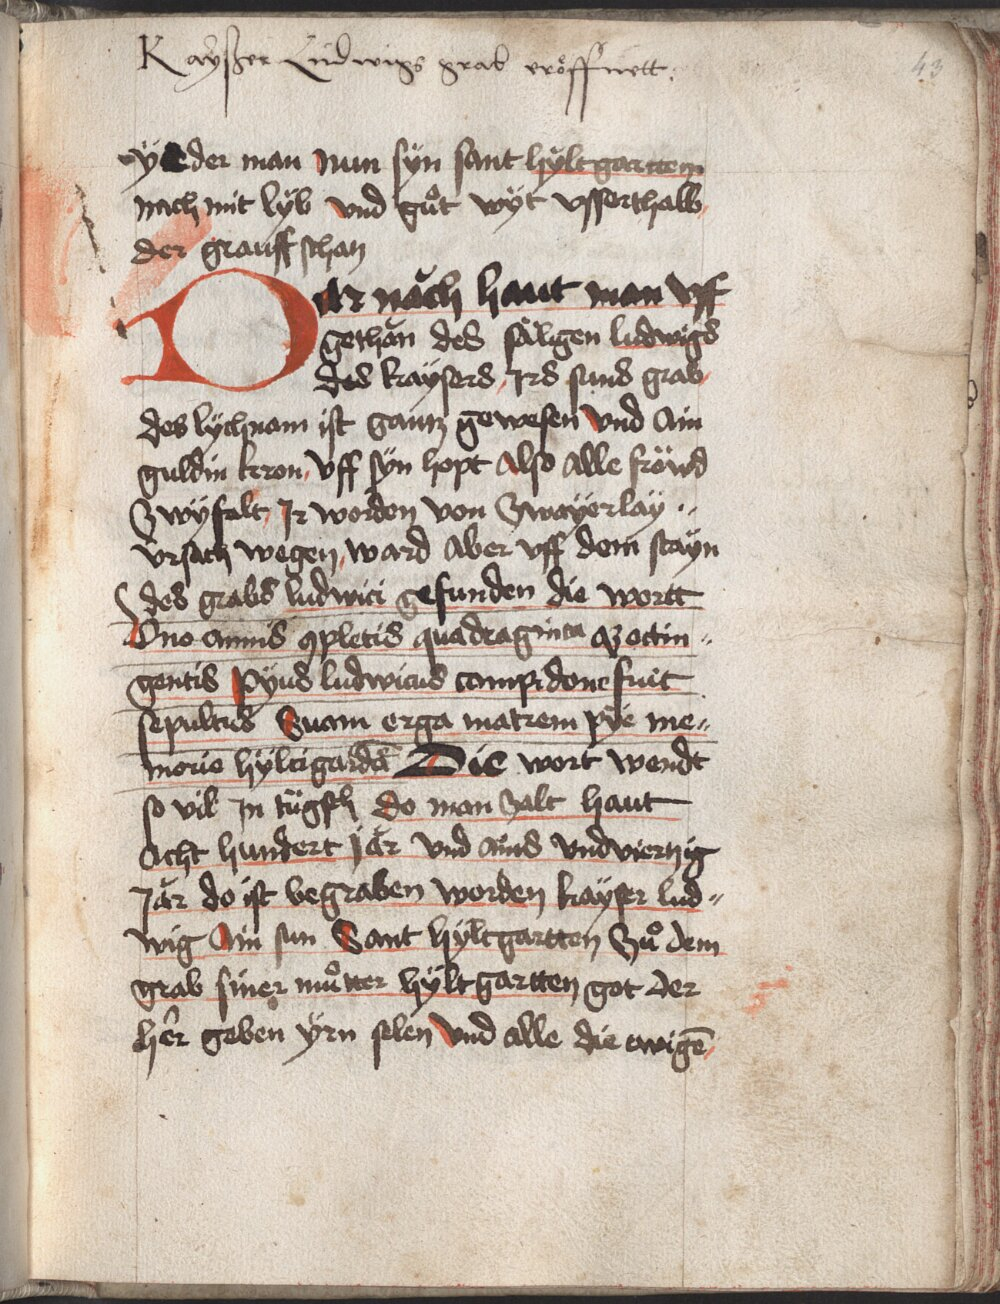 Kaÿßer Ludwigs grab eröffnett.
43
yeder man nun sÿn sant hÿltgartten
nach mit lÿb vnd gůt wÿt vsserthalb
der grauffschan
Dar nǎch haut man vff
gethǎn des säligen ludwigs
des kaÿsers, Irs suns grab,
des lÿchnam ist gantz gewesen vnd Ain
guldin kron, vff sÿn hopt Also Alle fröwd
Zwÿfalt, Ir worden von Zwaÿerlaÿ
vrsach wegen, ward Aber vff dem staÿn
des grabs ludwici gefunden die wortt
Dno Annis ꝯpletis quadraginta qz octin„
gentis Pÿus ludwicus campidone fuit
sepultus Suam erga matrem pÿe me„
morie hÿltigardā Die wort wendt
so vil In tügsch do man Zalt haut
Acht hundert Jǎr vnd ains vnd viertzig
Jǎr do ist begraben worden kaÿser lud„
wig Ain sun Sant hÿltgartten Zů dem
grab siner můtter hÿltgartten got der
her geben ÿrn selen vnd alle die ewigē